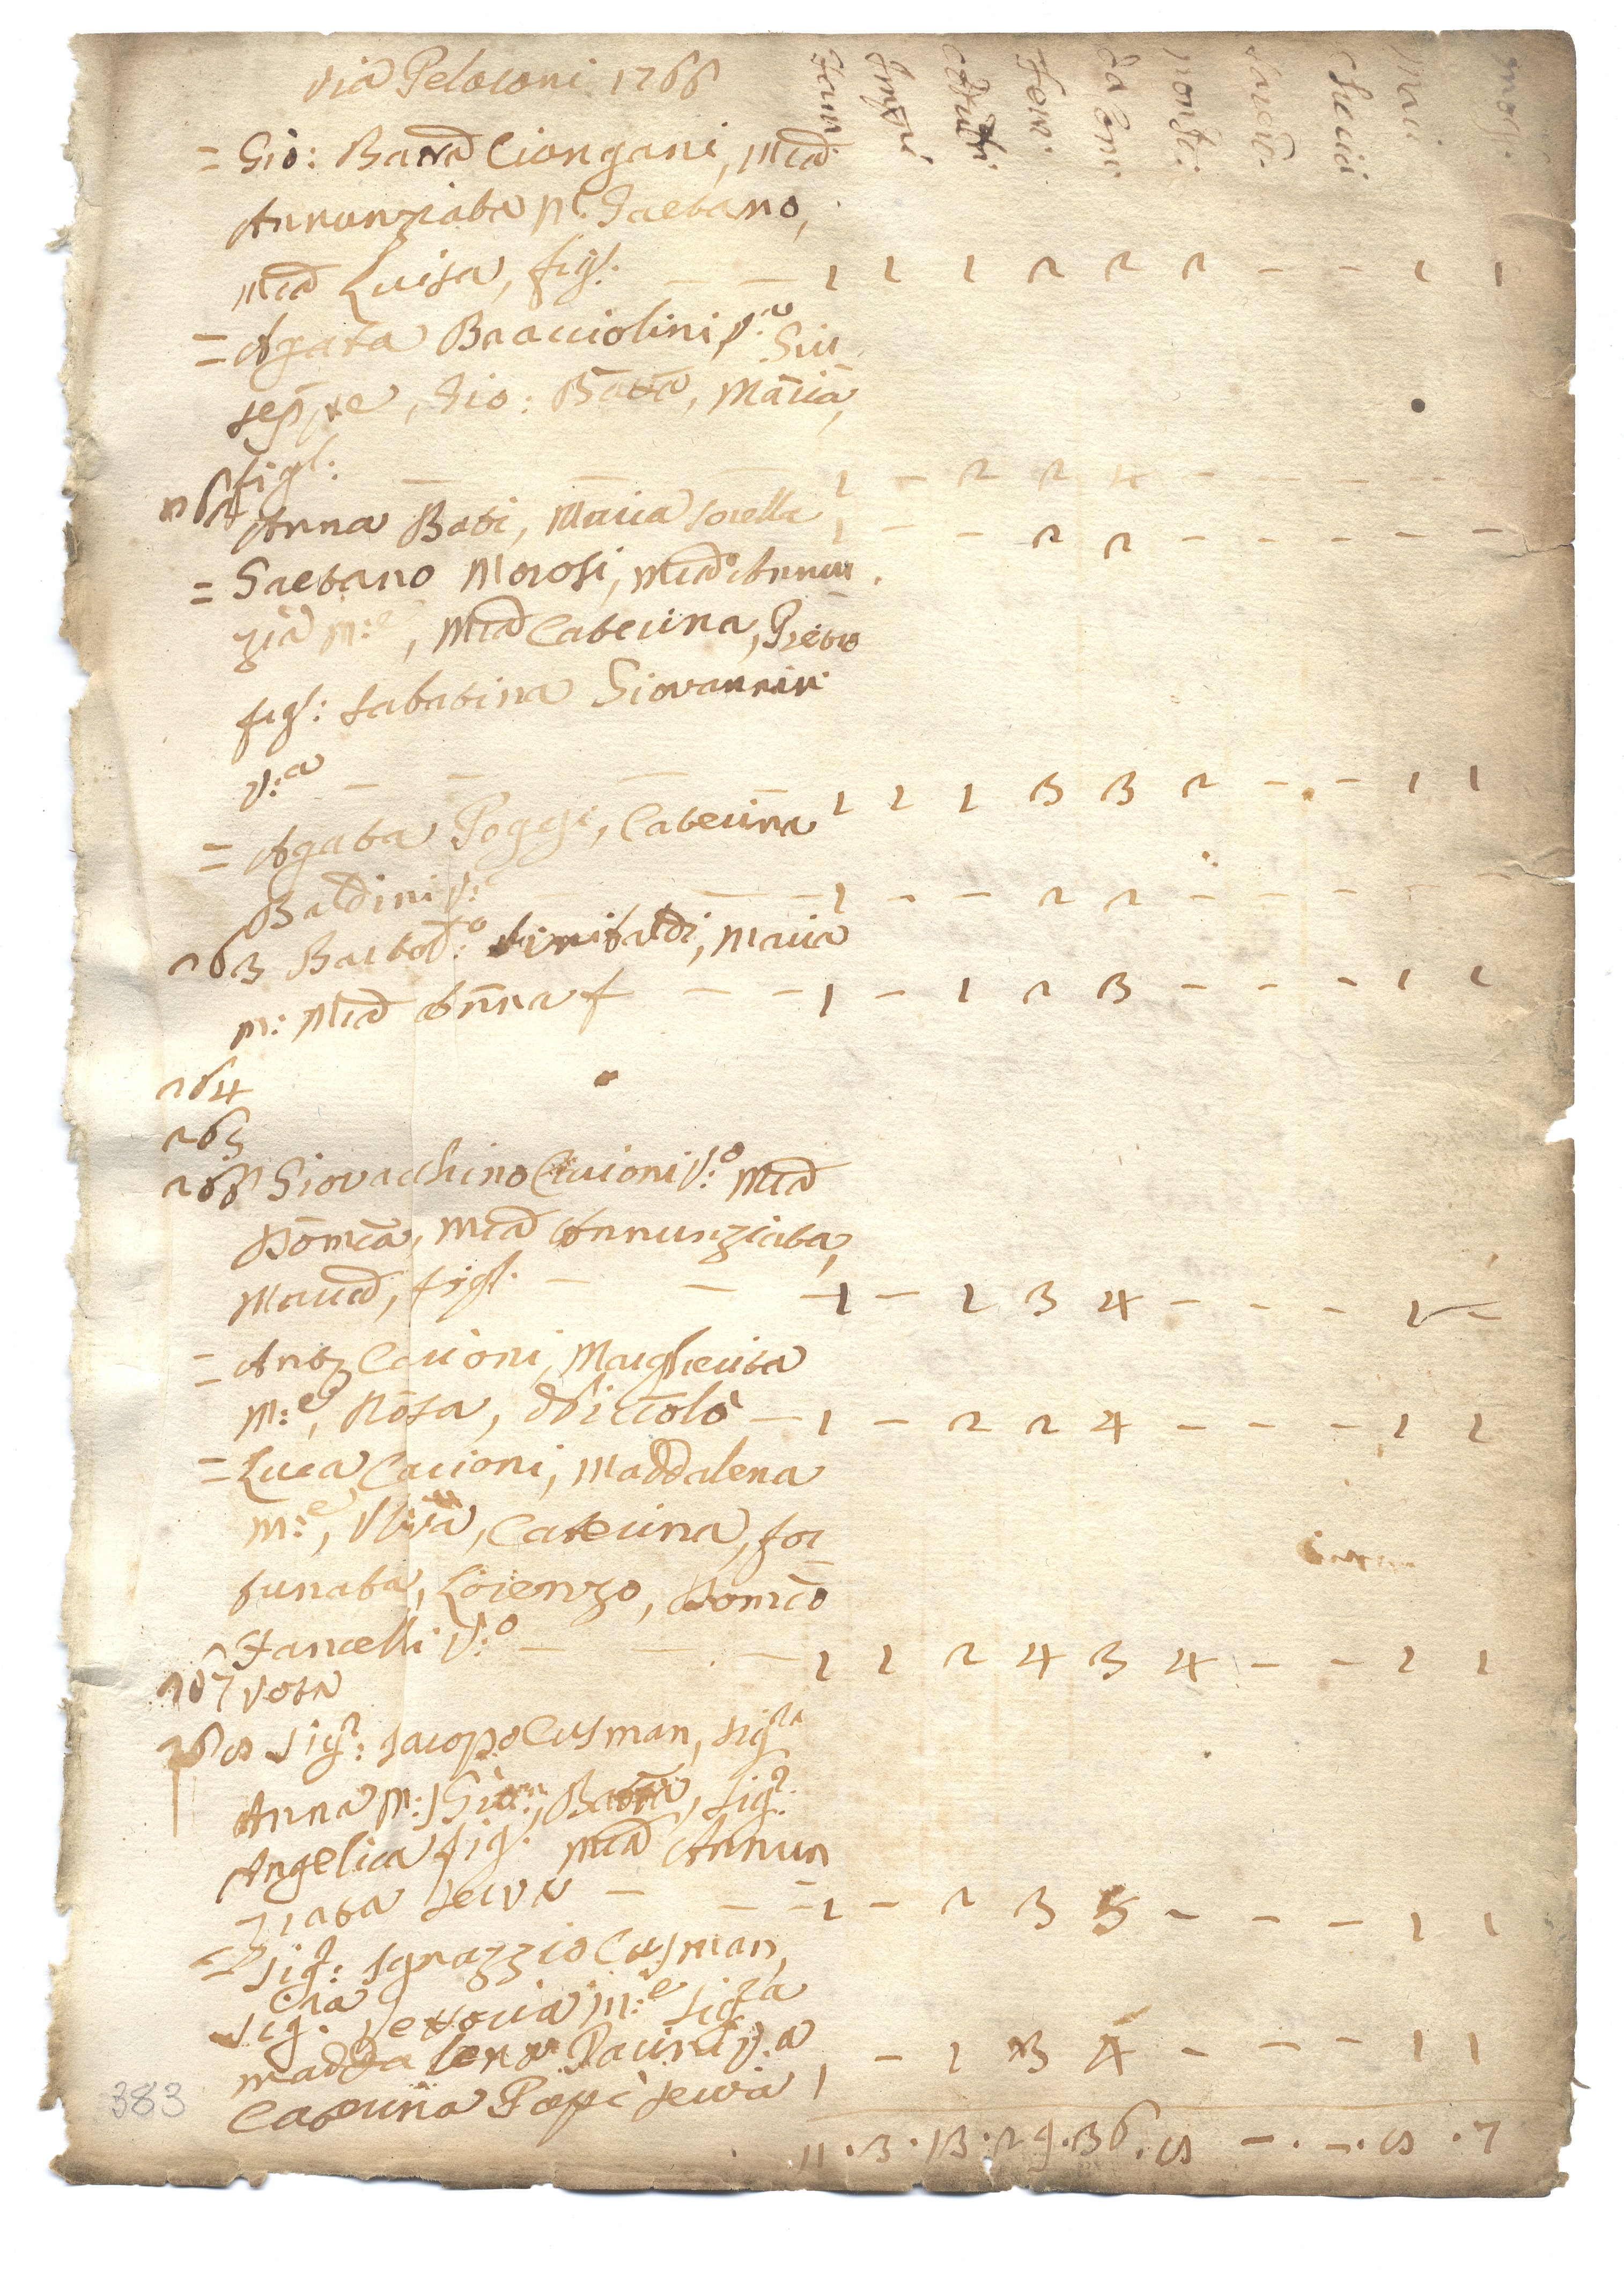 via Pelosoni 1766
Fam: Impi Adulti Fem. Da Com: non C: Sacerd. Cherici Mari: mogl:
= Gio: Batta Ciongani, Mia
Annunziata M.e Gaetano,
Mia Luisa, figl. — — 1 1 1 2 2 2 - - 1 1
= Agata Bracciolini V.a Giu
seppe, Gio: Batta, Maria,
figl: — — 1 - 2 2 4 - - - - -
262 Anna Bati, Maria sorella 1 - - 2 2 - - - - -
= Gaetano Morosi, Mia Annun
zia M:e, Mia Caterina, Pietro
figl: Sabatina Giovannin
V:a — — — — 1 1 1 3 3 2 - - 1 1
= Agata Poggi, Caterina
Baldini V: — — 1 - - 2 2 - - - - -
263 Bartol:o Sinibaldi, Maria
M: Mia Anna f — - 1 - 1 2 3 - - - 1 1
264
265
266 Giovacchino Cecioni V:o Mia
Domca, Mia Annunziata,
Maria, figl. — — - 1 - 1 3 4 - - - 1 -
= Anto Cecioni, Margherita
M:e, Rosa, Niccolò — 1 - 2 2 4 - - - 1 1
= Luca Cecioni, Maddalena
M:e, Uliva, Caterina, For
tunata, Lorenzo, Domco
Fancelli V:o — — 1 1 2 4 3 4 - - 1 1
267 Vota
268 Sig.r: Iacopo Cusman, Sig.ra
Anna M: Giu:, Batta, Sig.ra
Angelica figl. Mia Annun
ziata serva — — - 1 - 2 3 5 - - - 1 1
= Sig.r: Ignazzio Cusman,
Sig.ra Vettoria M:e Sig.ra
Maddalena Pacini V.a
Caterina Papi serva 1 - 1 3 4 - - - 1 1
11 . 3 . 13 . 29 . 36 . 8 - . - . 8 . 7
383